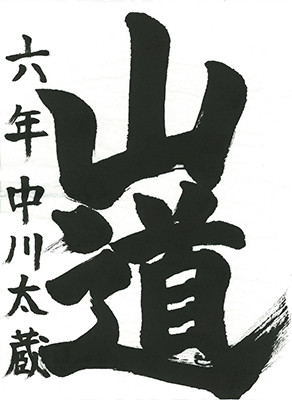 山道
六年 中川太蔵